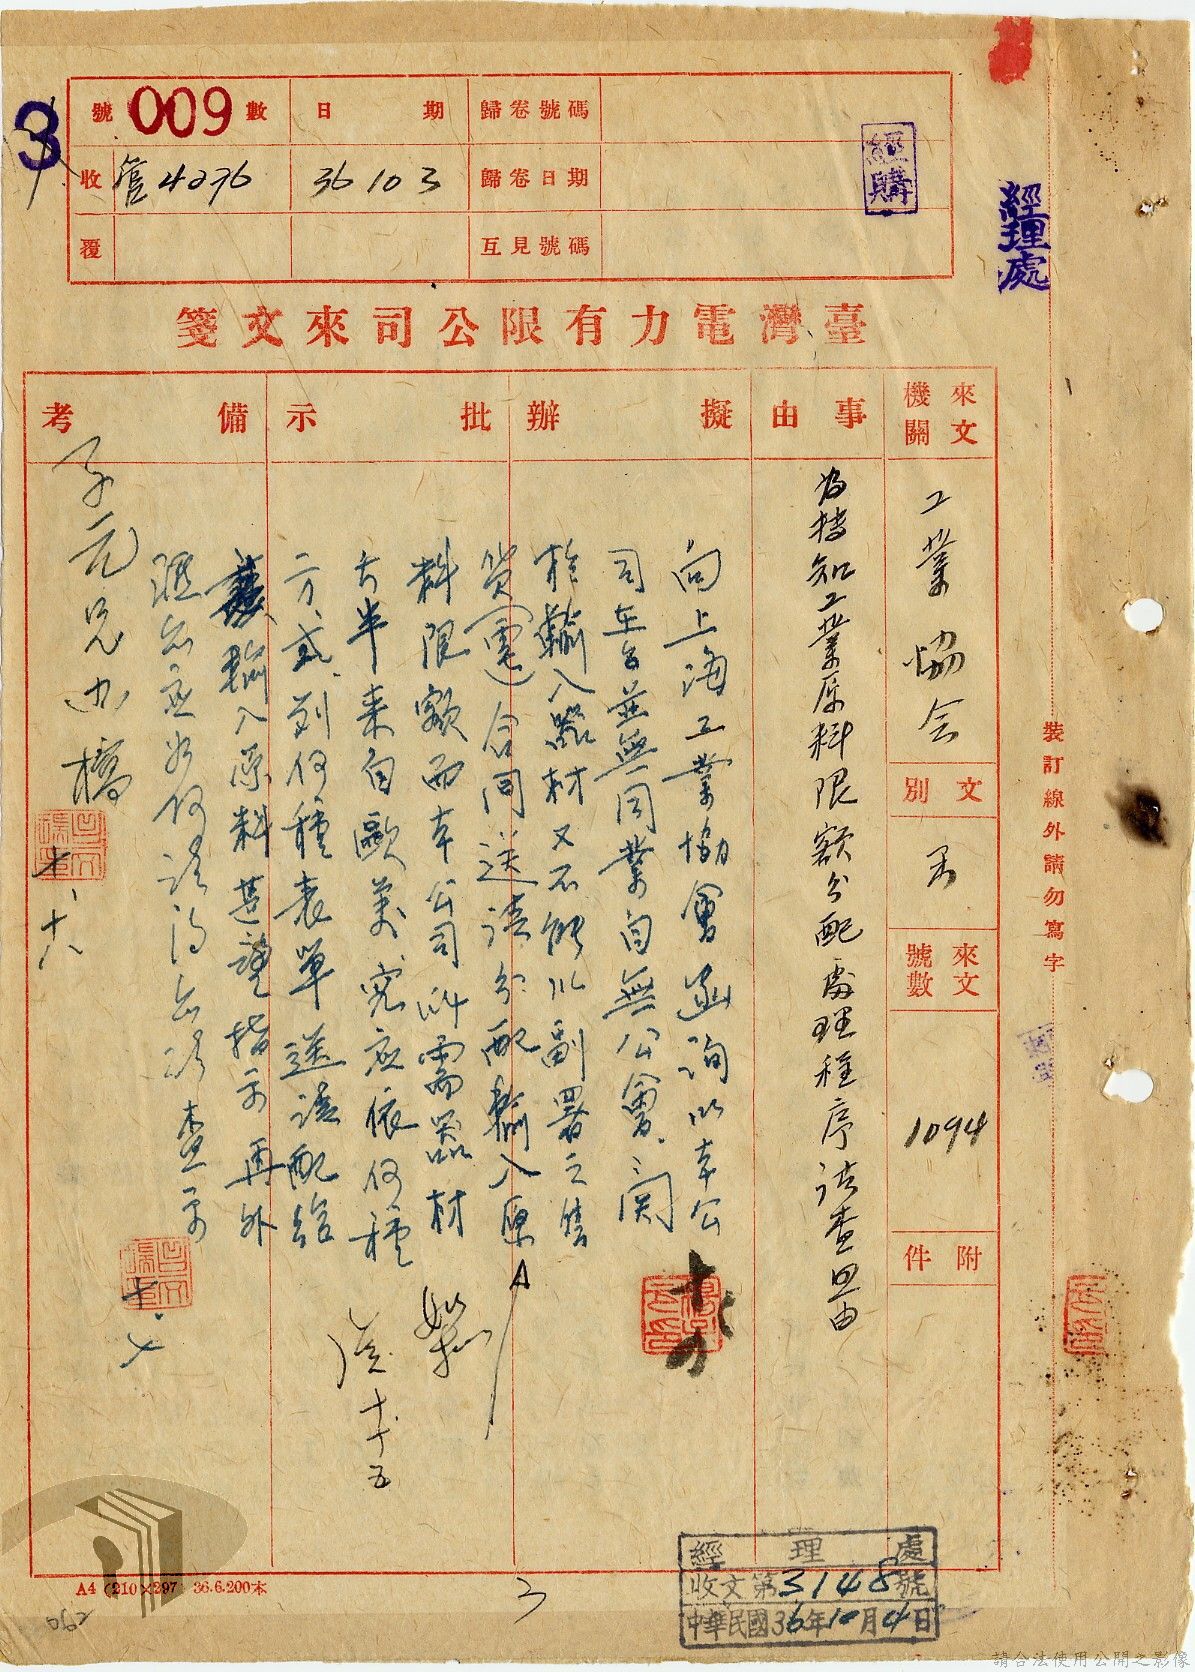 3
號 009 數
日 期
歸卷號碼
收 管4236
36 10 3
歸卷日期
覆
互見號碼
經購
經理處
臺灣電力有限公司來文箋
來文機關
工業協会
文別
來文號數
1094
附件
事由
為抄知工業原料限額分配處理程序请查照由
擬辦
批示
備考
向上海工業協會函詢以本公
司在台並無同業自無公會、関
於輸入器材又不能以副署之售
貨電合同送请分配輸入原
料限額而本公司所需器材
大半来自歐美、究应依何種
方式列何種表單送请配給
輸入原料甚望指示再外
匯
查示
十、七
子元兄办稿
十、十八
十、十五
裝訂線外請勿寫字
經理處
收文第3148號
中華民國36年10月4日
A4 (210×297) 36.6.200本
3
062
請合法使用公開之影像